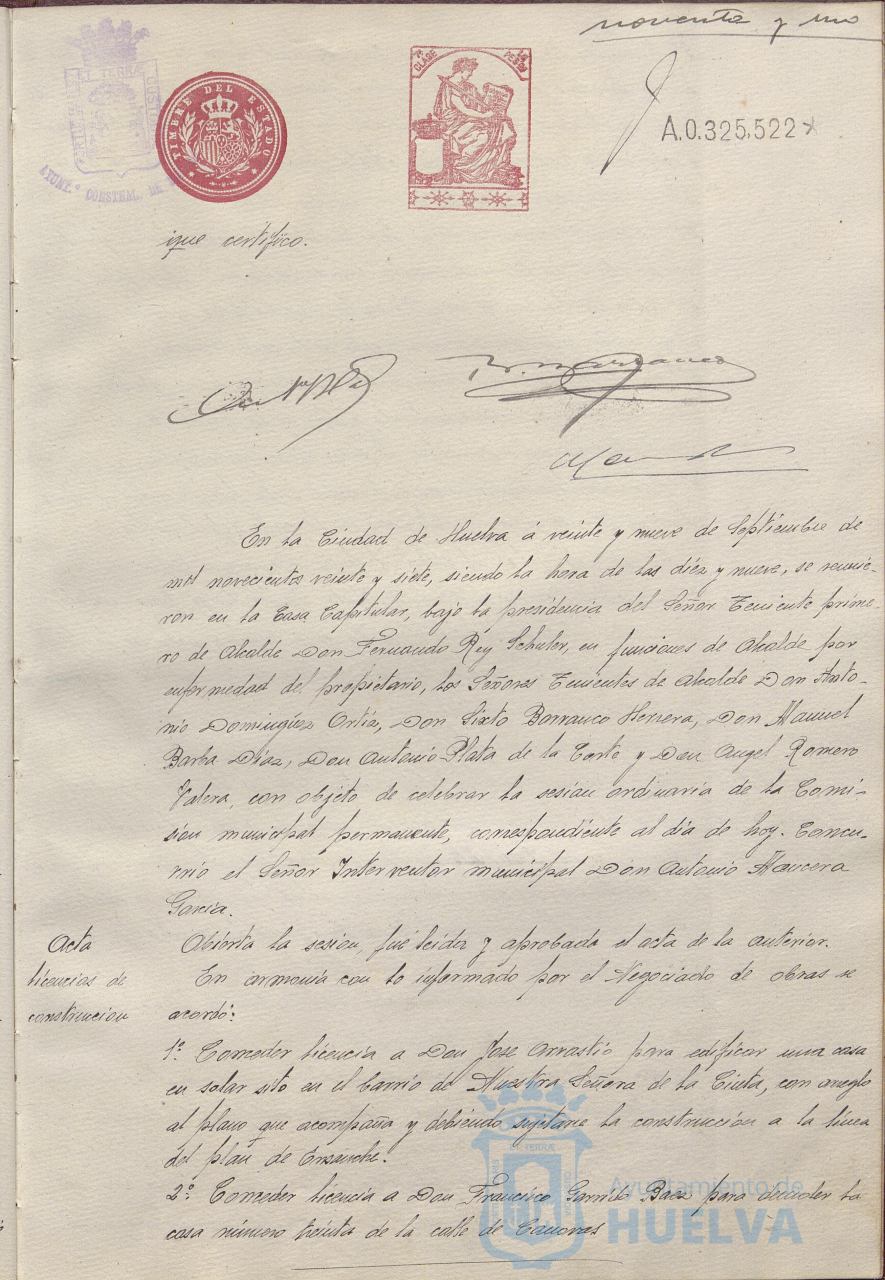 noventa y uno
TIMBRE DEL ESTADO
7ª CLASE
PESETA
A.0.325,522
AYUNT.º CONSTNAL. DE
que certifico.
En la Ciudad de Huelva á veinte y nueve de Septiembre de
mil novecientos veinte y siete, siendo la hora de las diéz y nueve, se reunie-
ron en la Casa Capitular, bajo la presidencia del Señor Teniente prime-
ro de Alcalde Don Fernando Rey Schuler, en funciones de Alcalde por
enfermedad del propietario, los Señores Tenientes de Alcalde Don Anto-
nio Dominguez Ortiz, Don Sixto Barranco Herrera, Don Manuel
Barba Diaz, Don Antonio Plata de la Corte y Don Angel Romero
Valera, con objeto de celebrar la sesión ordinaria de la Comi-
sion municipal permanente, correspondiente al día de hoy. Concu-
rrió el Señor Interventor municipal Don Antonio Mancera
Garcia.
Acta
Abierta la sesion, fué leida y aprobada el acta de la anterior.
licencias de
construccion
En armonia con lo informado por el Negociado de obras se
acordó:
1º Conceder licencia a Don Jose Arrostio para edificar una casa
en solar sito en el barrio de Nuestra Señora de la Cinta, con arreglo
al plano que acompaña y debiendo sujetarse la construcción a la linea
del plan de Ensanche.
2º Conceder licencia a Don Francisco Garrido Baez para demoler la
casa número treinta de la calle de Canovas
Ayuntamiento de
HUELVA